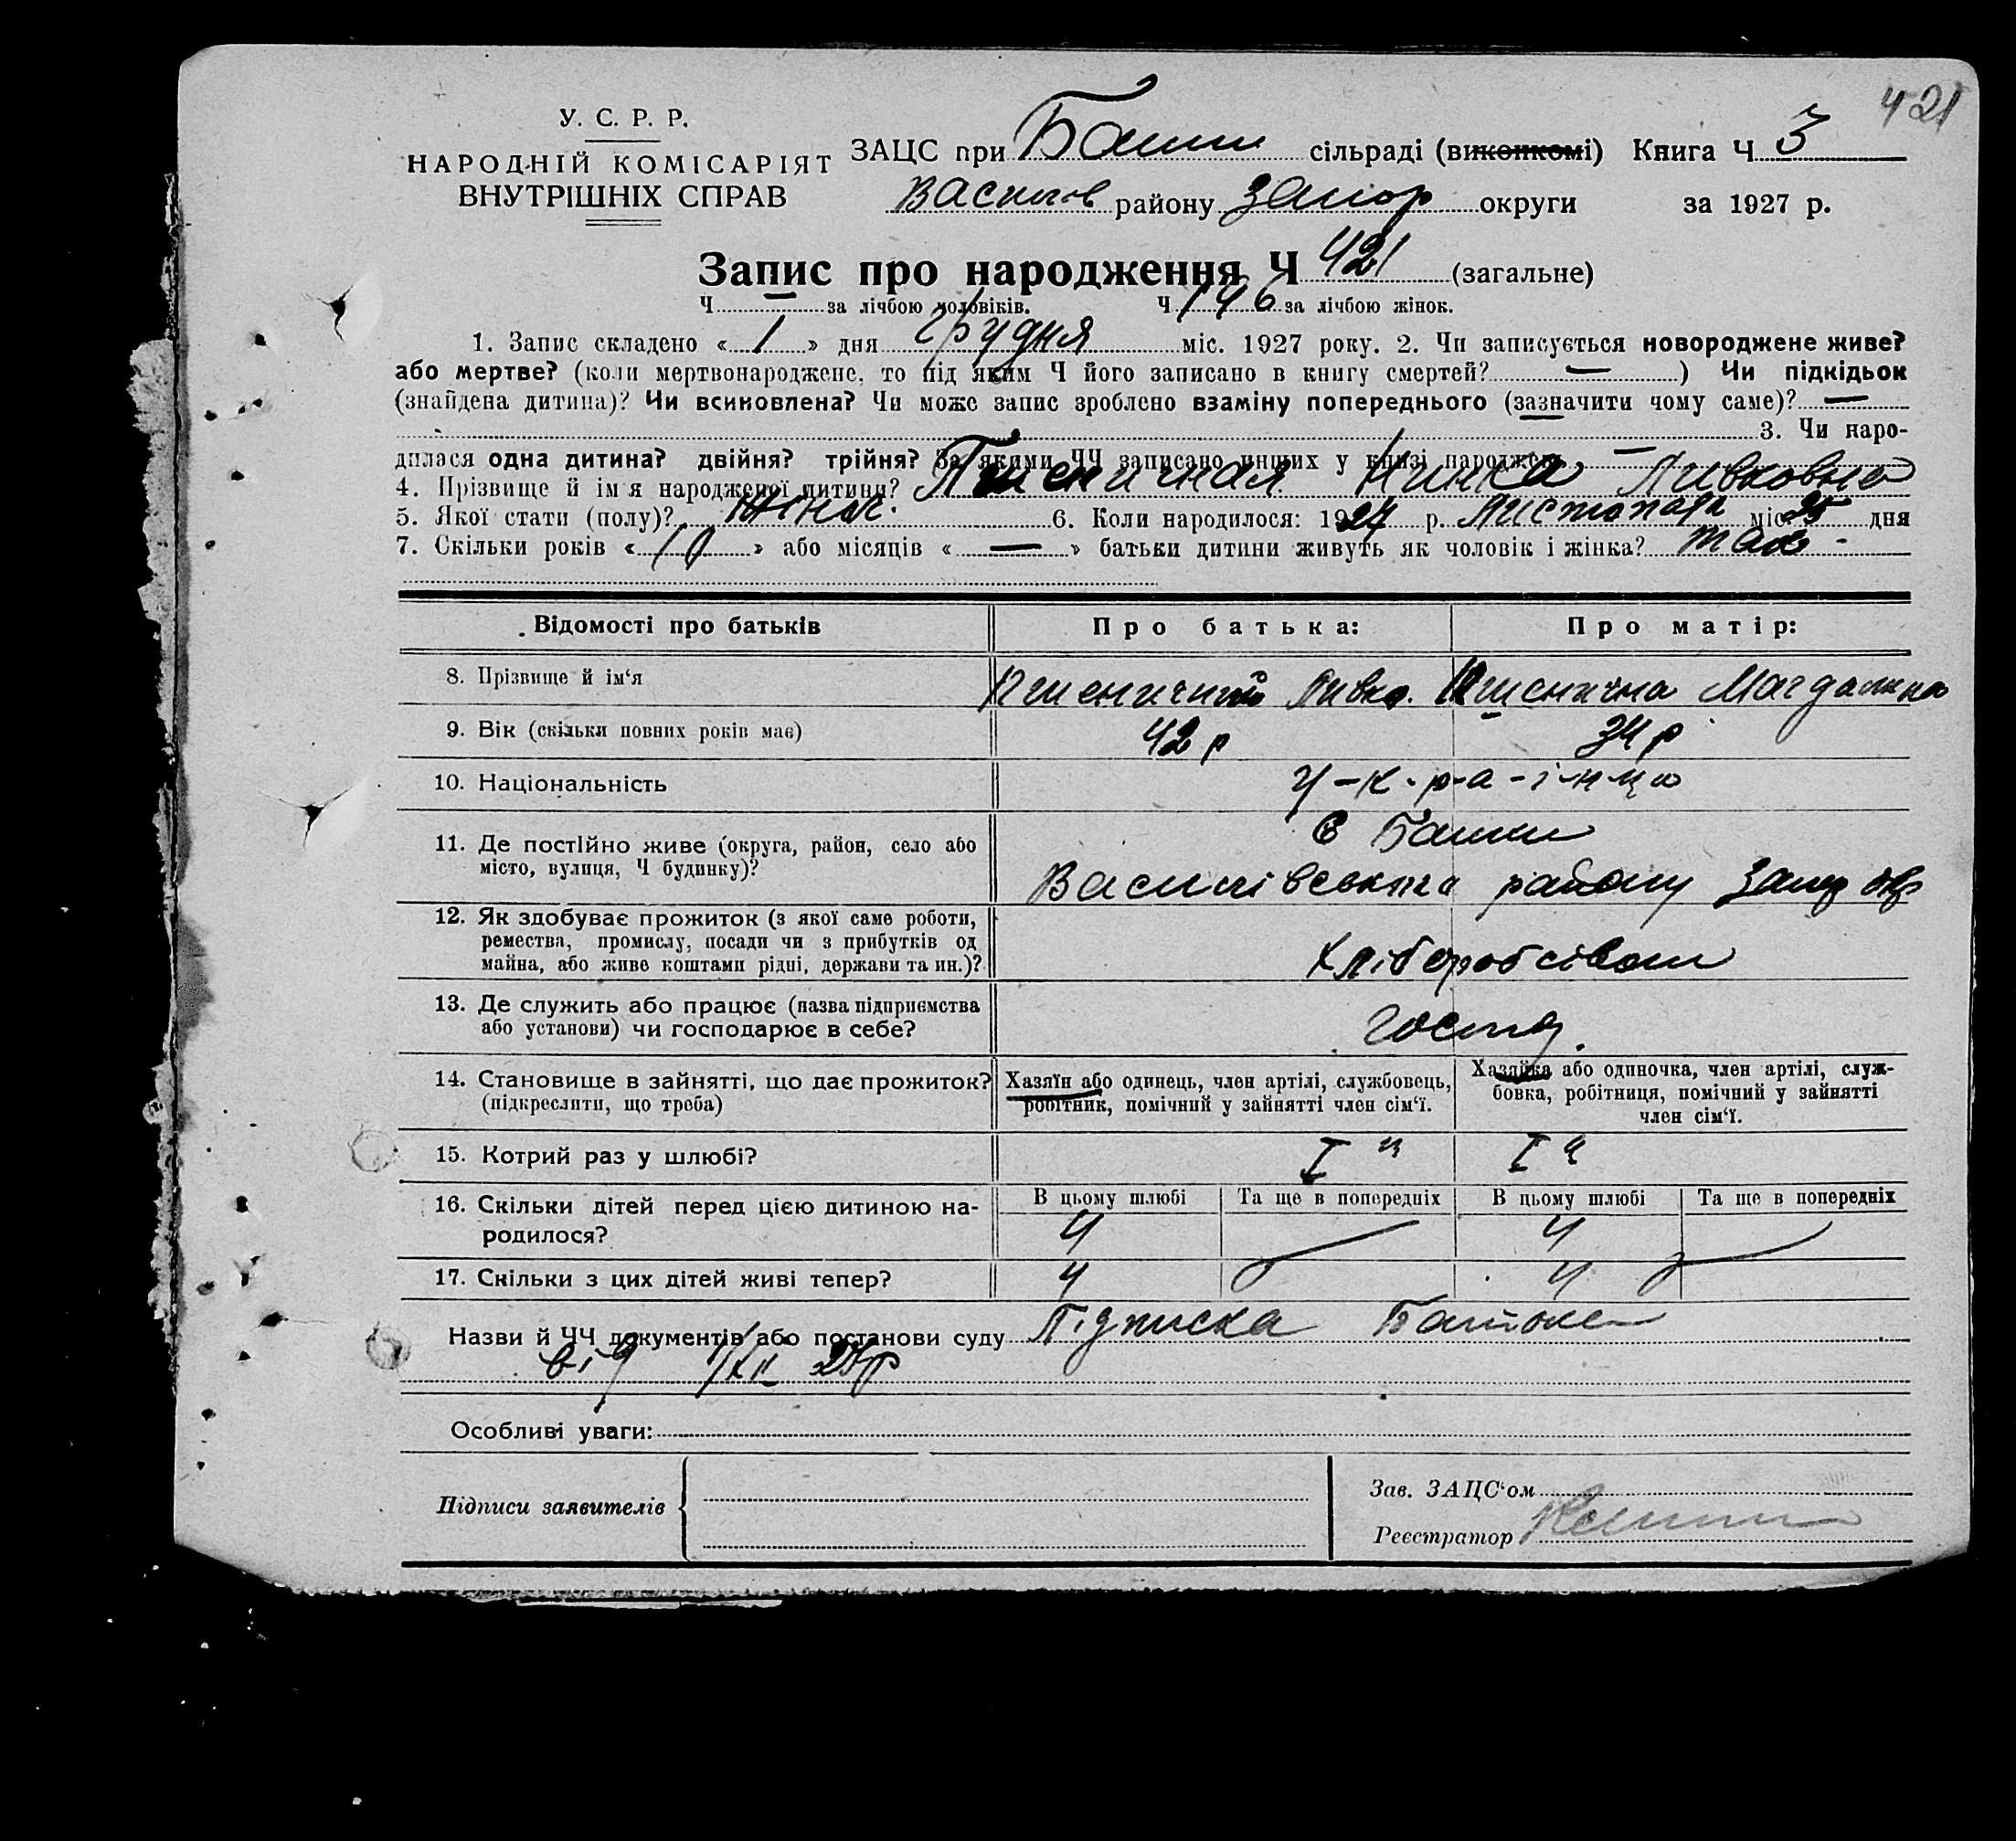 421
У. С. Р. Р.
НАРОДНІЙ КОМІСАРІЯТ
ВНУТРІШНІХ СПРАВ
ЗАЦС при сільраді (виконкомі) Книга Ч 3
Василів району Запор округи за 1927 р.
Запис про народження Ч 421 (загальне)
Ч — за лічбою чоловіків. Ч 196 за лічбою жінок.
1. Запис складено « 1 » дня грудня міс. 1927 року. 2. Чи записується новороджене живе?
або мертве? (коли мертвонароджене, то під яким Ч його записано в книгу смертей? — ) Чи підкідьок
(знайдена дитина)? Чи всиновлена? Чи може запис зроблено взаміну попереднього (зазначити чому саме)? —
3. Чи наро-
дилася одна дитина? двійня? трійня? За якими ЧЧ записано инших у книзі народжень —
4. Прізвище й ім'я народженої дитини? Пшеничная Нинка Ливковна
5. Якої стати (полу)? жіноч. 6. Коли народилося: 1927 р. Листопада міс. 25 дня
7. Скільки років « 10 » або місяців « — » батьки дитини живуть як чоловік і жінка? так -
Відомості про батьків Про батька: Про матір:
8. Прізвище й ім'я Пшеничний Ливко. Пшенична Магдалина
9. Вік (скільки повних років має) 42 р 34 р
10. Національність у-к-р-а-ї-н-ц
11. Де постійно живе (округа, район, село або
місто, вулиця, Ч будинку)?
Василівського району Запор окр
12. Як здобуває прожиток (з якої саме роботи,
ремества, промислу, посади чи з прибутків од
майна, або живе коштами рідні, держави та ин.)?
13. Де служить або працює (назва підприємства
або установи) чи господарює в себе?
14. Становище в зайнятті, що дає прожиток?
(підкреслити, що треба)
Хазяїн або одинець, член артілі, службовець,
робітник, помічний у зайнятті член сім'ї.
Хазяйка або одиночка, член артілі, служ-
бовка, робітниця, помічний у зайнятті
член сім'ї.
15. Котрий раз у шлюбі? I й I й
16. Скільки дітей перед цією дитиною на-
родилося?
В цьому шлюбі Та ще в попередніх В цьому шлюбі Та ще в попередніх
4 4
17. Скільки з цих дітей живі тепер? 4 4
Назви й ЧЧ документів або постанови суду Підписка Батька
від 1/XII 27р
Особливі уваги:
Підписи заявителів
Зав. ЗАЦС'ом
Реєстратор